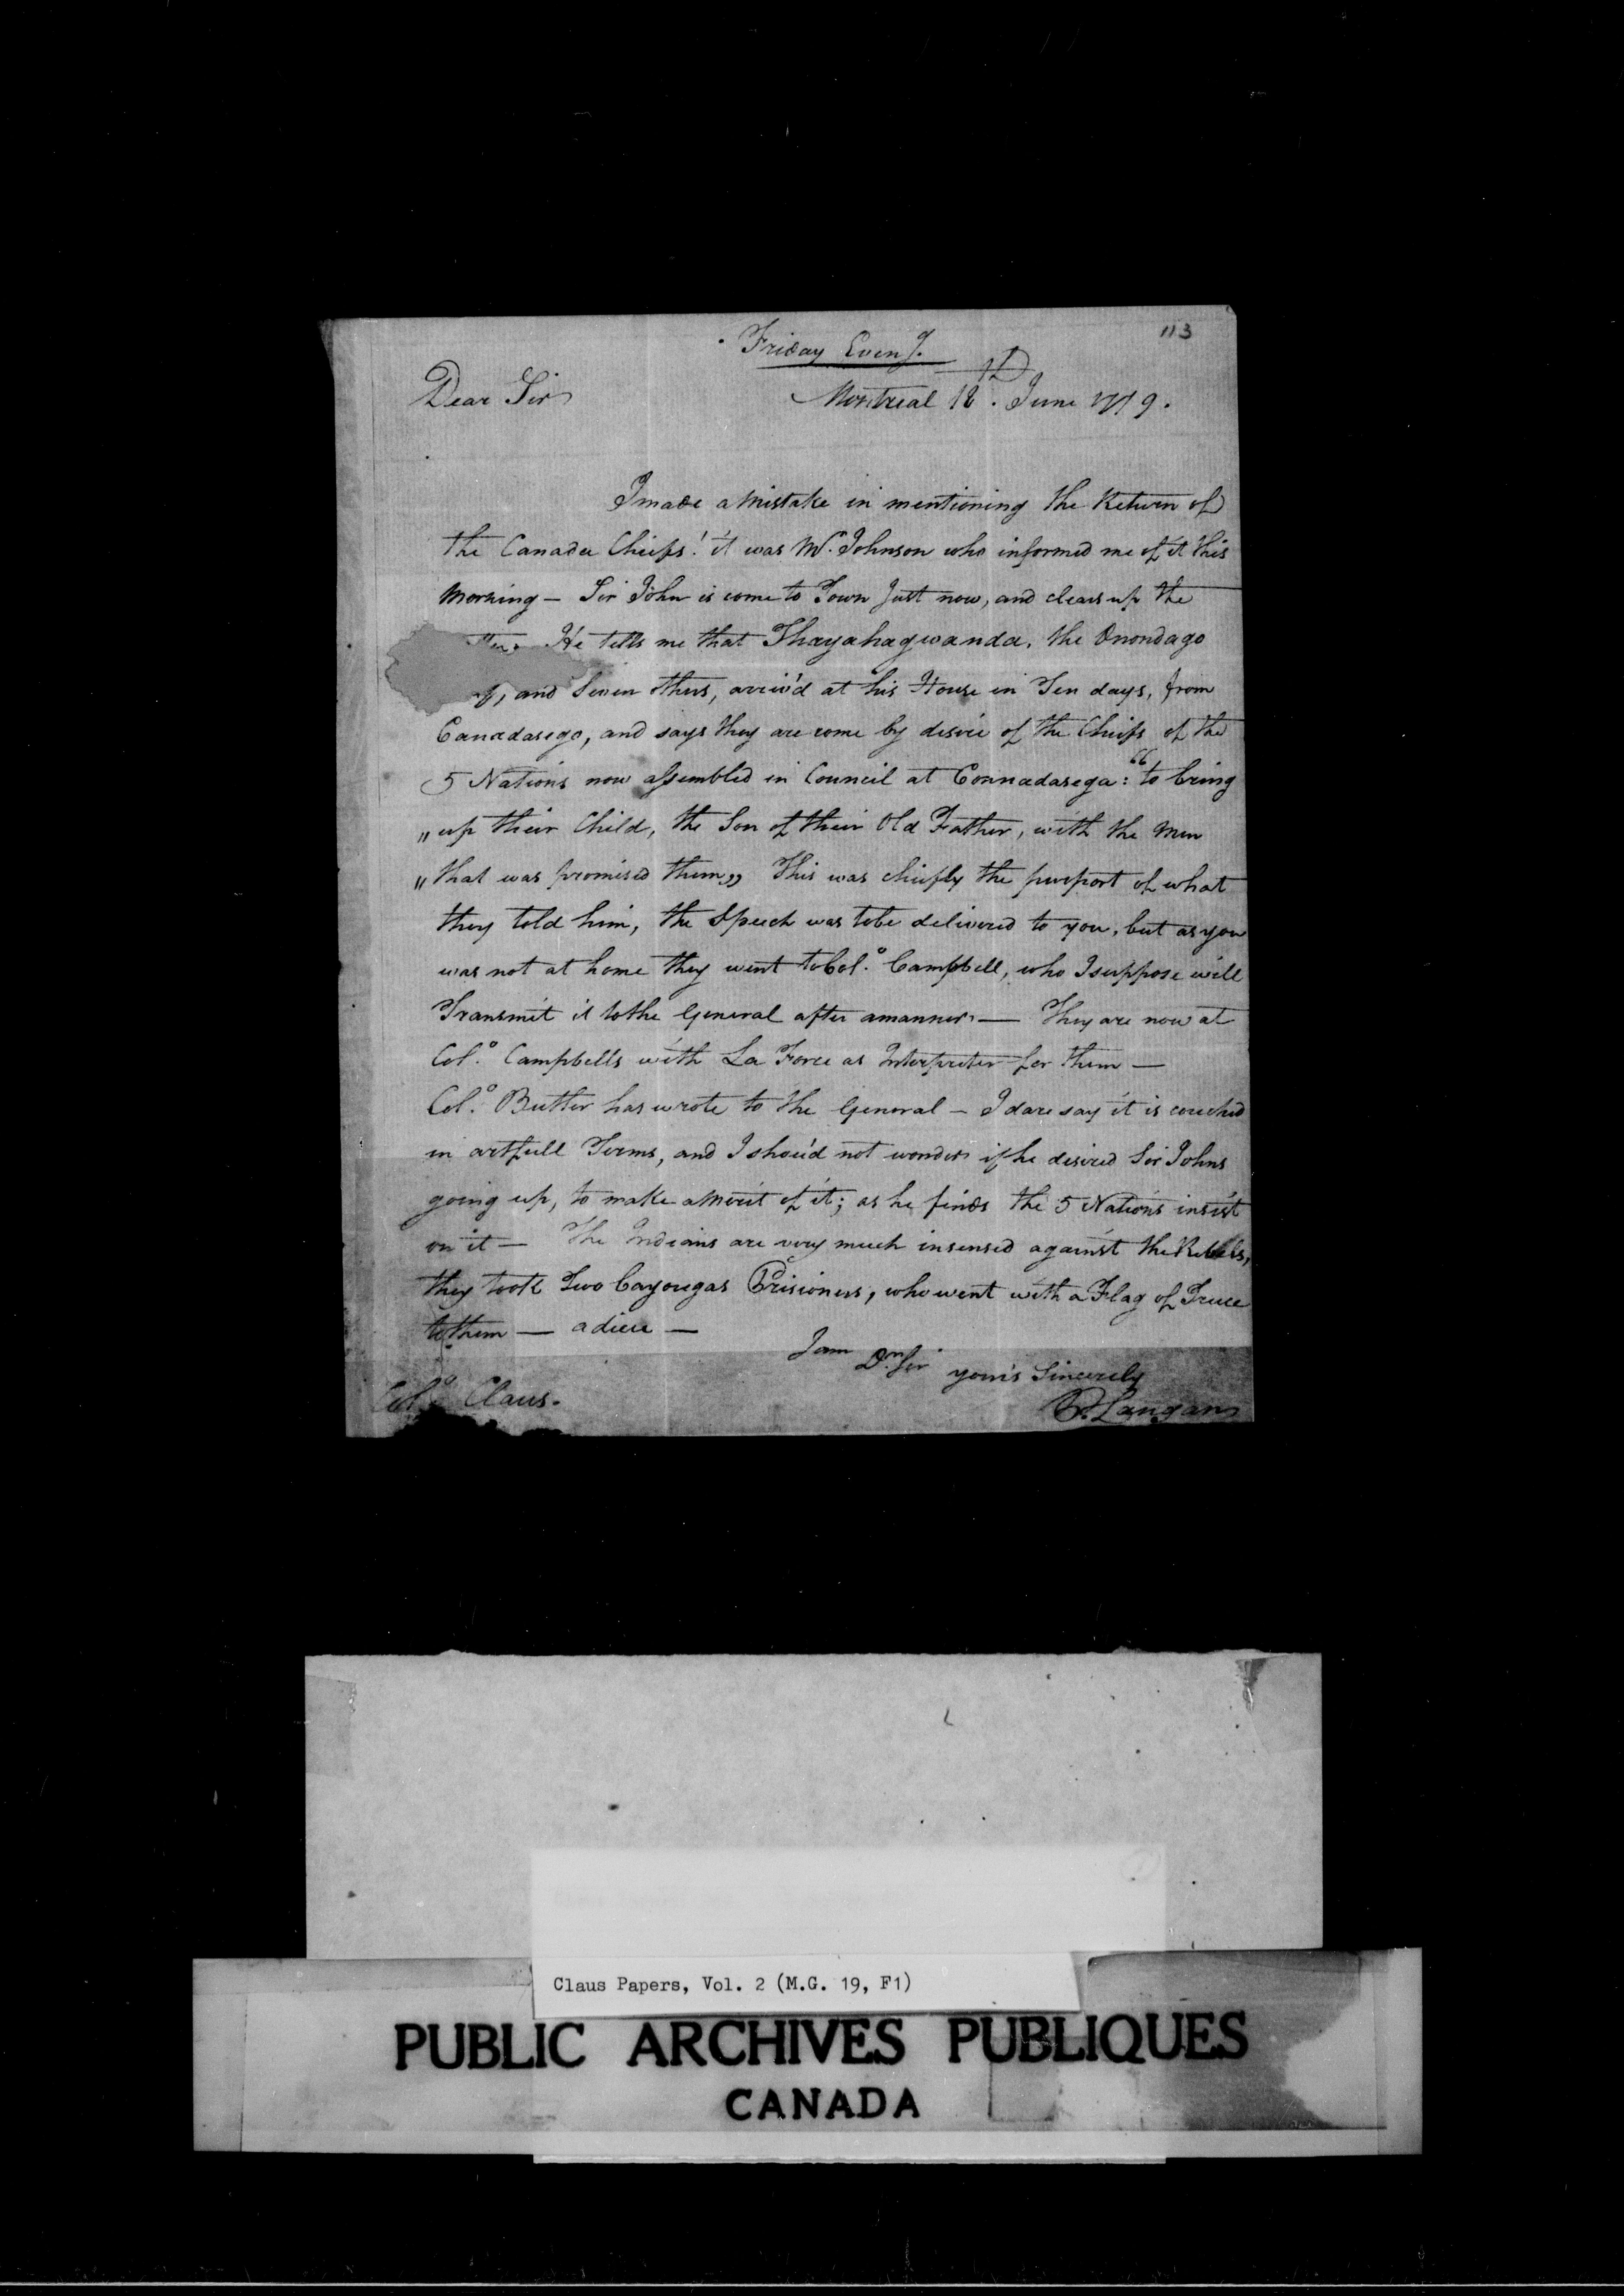 113
Friday Eveng.
Dear Sir
Montreal 18th. June 1779.
I made a Mistake in mentioning the Return of
the Canada Chiefs! it was Mr. Johnson who informed me of it this
Morning — Sir John is come to Town Just now, and clears up the
He tells me that Thayahagwanda, the Onondago
and Seven thers, arriv'd at his House in Ten days, from
Canadasego, and says they are come by desire of the Chiefs of the
5 Nations now assembled in Council at Connadasega: "to bring
"up their Child, the Son of their Old Father, with the Men
"that was promised them" This was chiefly the purport of what
they told him, the Speech was to be delivered to you, but as you
was not at home they went to Colo. Campbell, who I suppose will
Transmit it to the General after a manner — They are now at
Colo. Campbells with La Force as Interpreter for them —
Colo. Butler has wrote to the General — I dare say it is couched
in artfull Terms, and I shou'd not wonder if he desired Sir Johns
going up, to make a Merit of it; as he finds the 5 Nations insist
on it — The Indians are very much insensed against the Rebels,
they took Two Cayougas Prisioners, who went with a Flag of Truce
to them — adieu —
I am Dr. Sir yours Sincerely
Colo. Claus.
P. Langan
Claus Papers, Vol. 2 (M.G. 19, F1)
PUBLIC ARCHIVES PUBLIQUES
CANADA